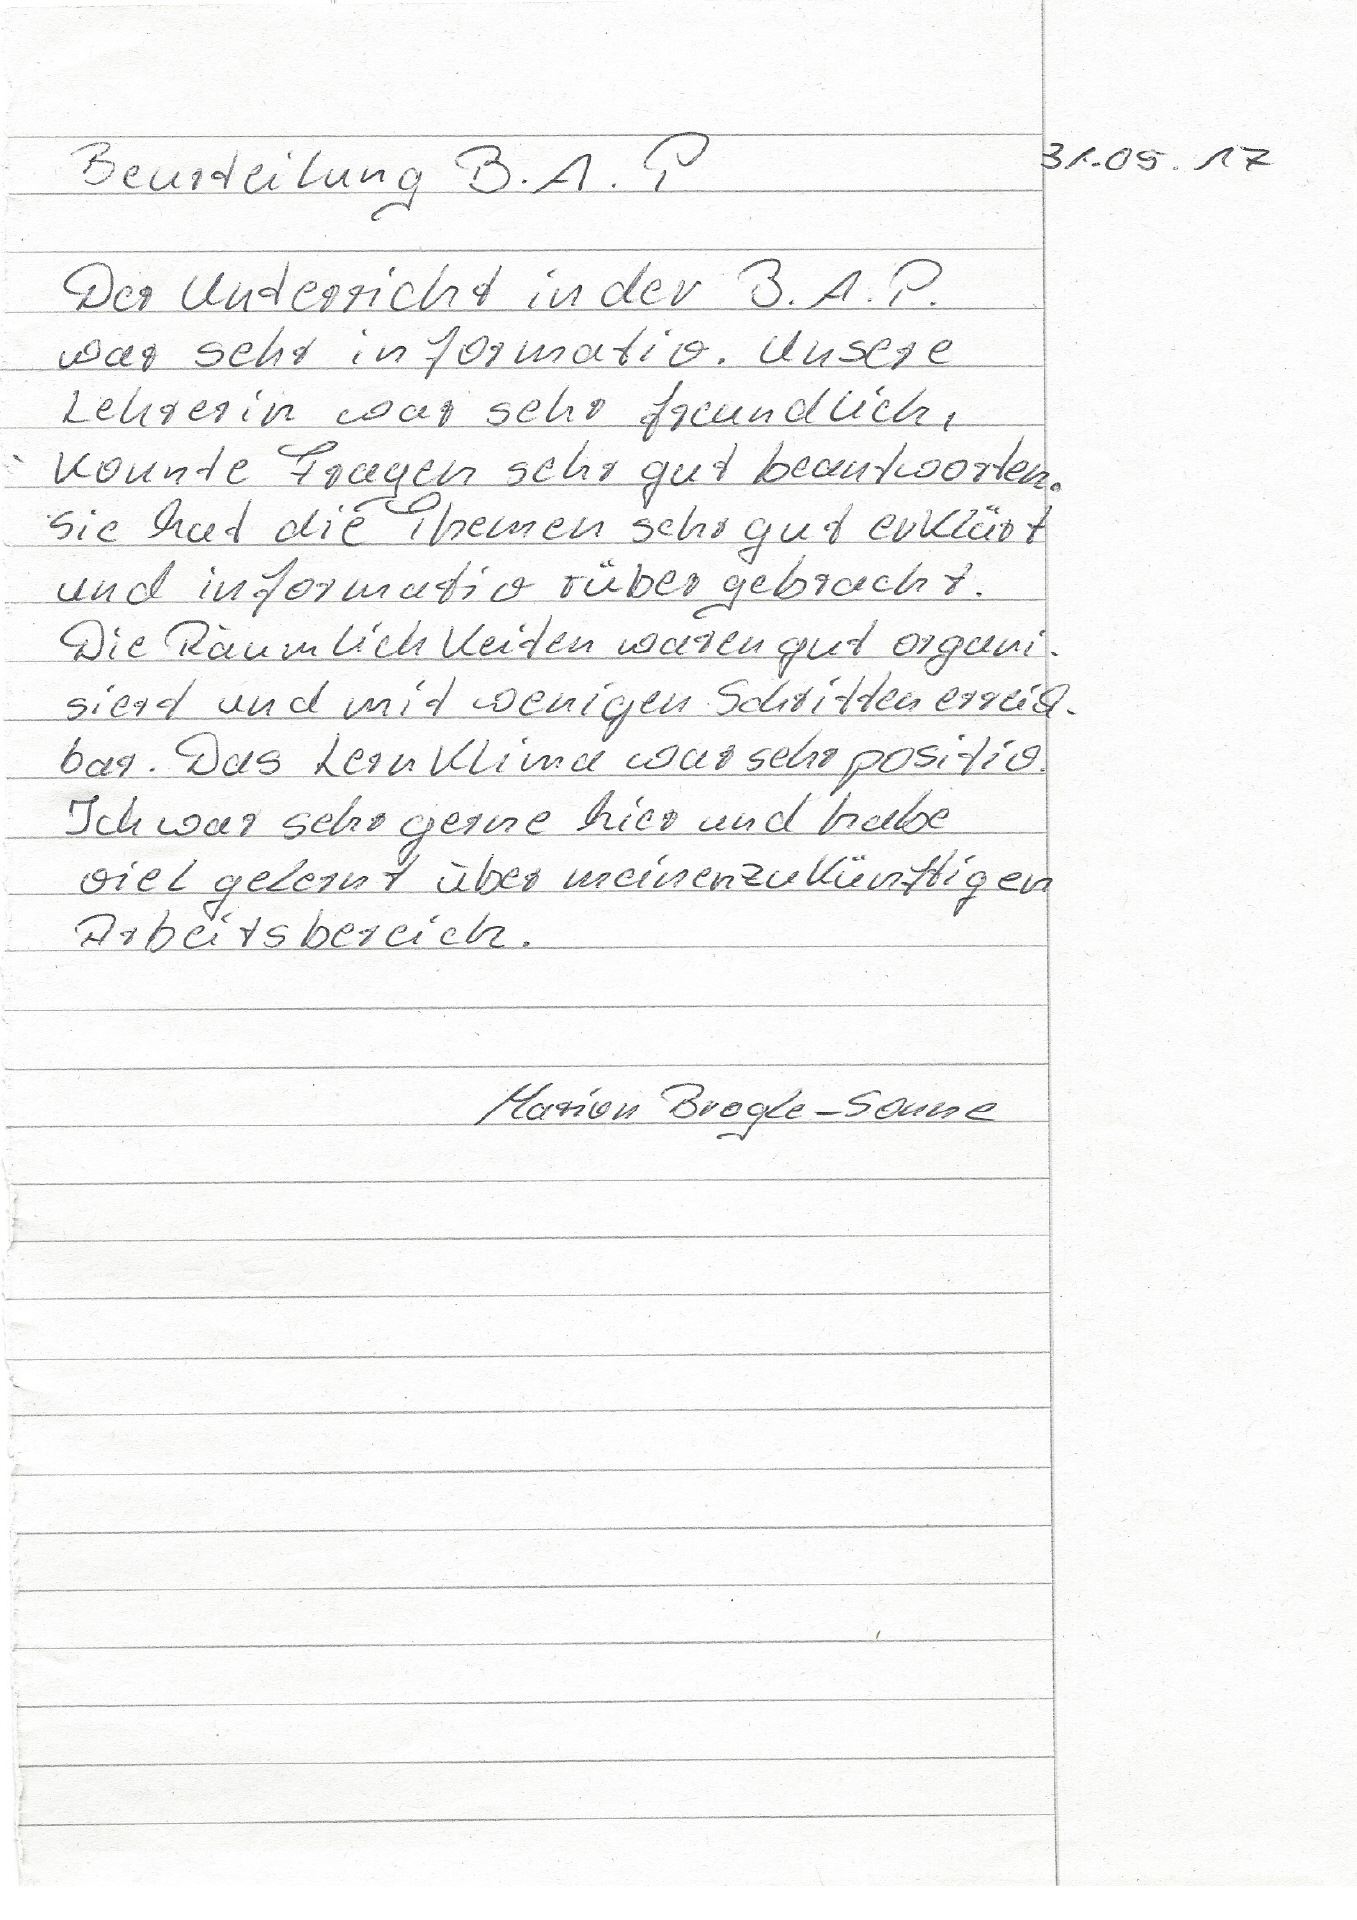 Beurteilung B.A.P 31.05.17
Der Unterricht in der B.A.P.
war sehr informativ. Unsere
Lehrerin war sehr freundlich,
konnte Fragen sehr gut beantworten.
Sie hat die Themen sehr gut erklärt
und informativ rübergebracht.
Die Räumlichkeiten waren gut organi-
siert und mit wenigen Schritten erreich-
bar. Das Lernklima war sehr positiv.
Ich war sehr gerne hier und habe
viel gelernt über meinen zukünftigen
Arbeitsbereich.
Marion Brogle-Sonne